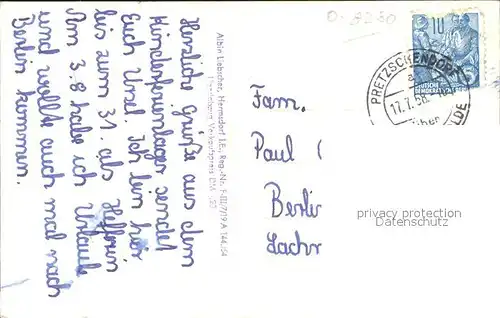 Herzliche Grüße aus dem
Kinderferienlager sendet
Euch Ursel. Ich bin hier
bis zum 31. als Helferin
Am 3.8 habe ich Urlaub
und wollte auch mal nach
Berlin kommen.
Albin Liebscher, Hermsdorf i.E., Reg.-Nr.
Verkaufspreis DM
0-8230
10
DEUTSCHE
DEMOKRATISCHE
PRETZSCHENDORF
17.7.56
über
Fam.
Paul (
Berlin
privacy protection
Datenschutz